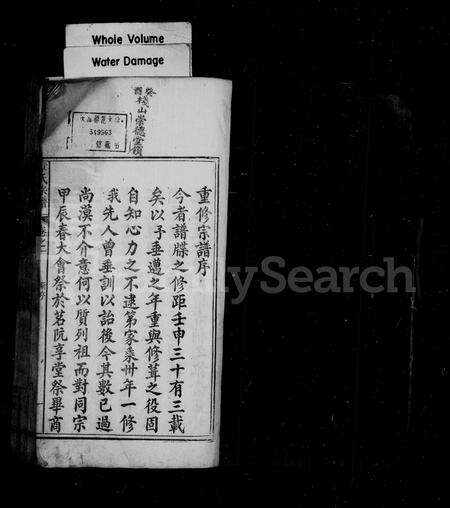 Whole Volume
Water Damage
癸酉
棧山崇德堂續
549563
重修宗譜序
今者譜牒之修距壬申三十有三載
矣以予垂邁之年重與修葺之役固
自知心力之不逮第家乘卅年一修
我先人曾垂訓以詒後今其數已過
尚漠不介意何以質列祖而對同宗
甲辰春大會祭於茗阮享堂祭畢商
MySearch